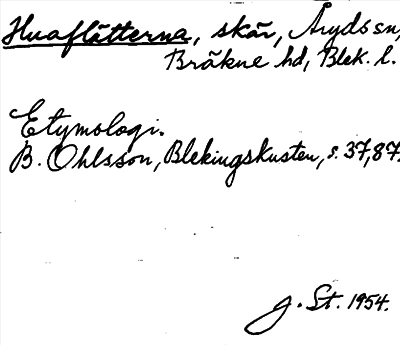 Huaflätterna, skär, Åryds sn,
Bräkne hd, Blek. l.
Etymologi.
B. Ohlsson, Blekingskusten, s. 37, 87.
J. St. 1954.